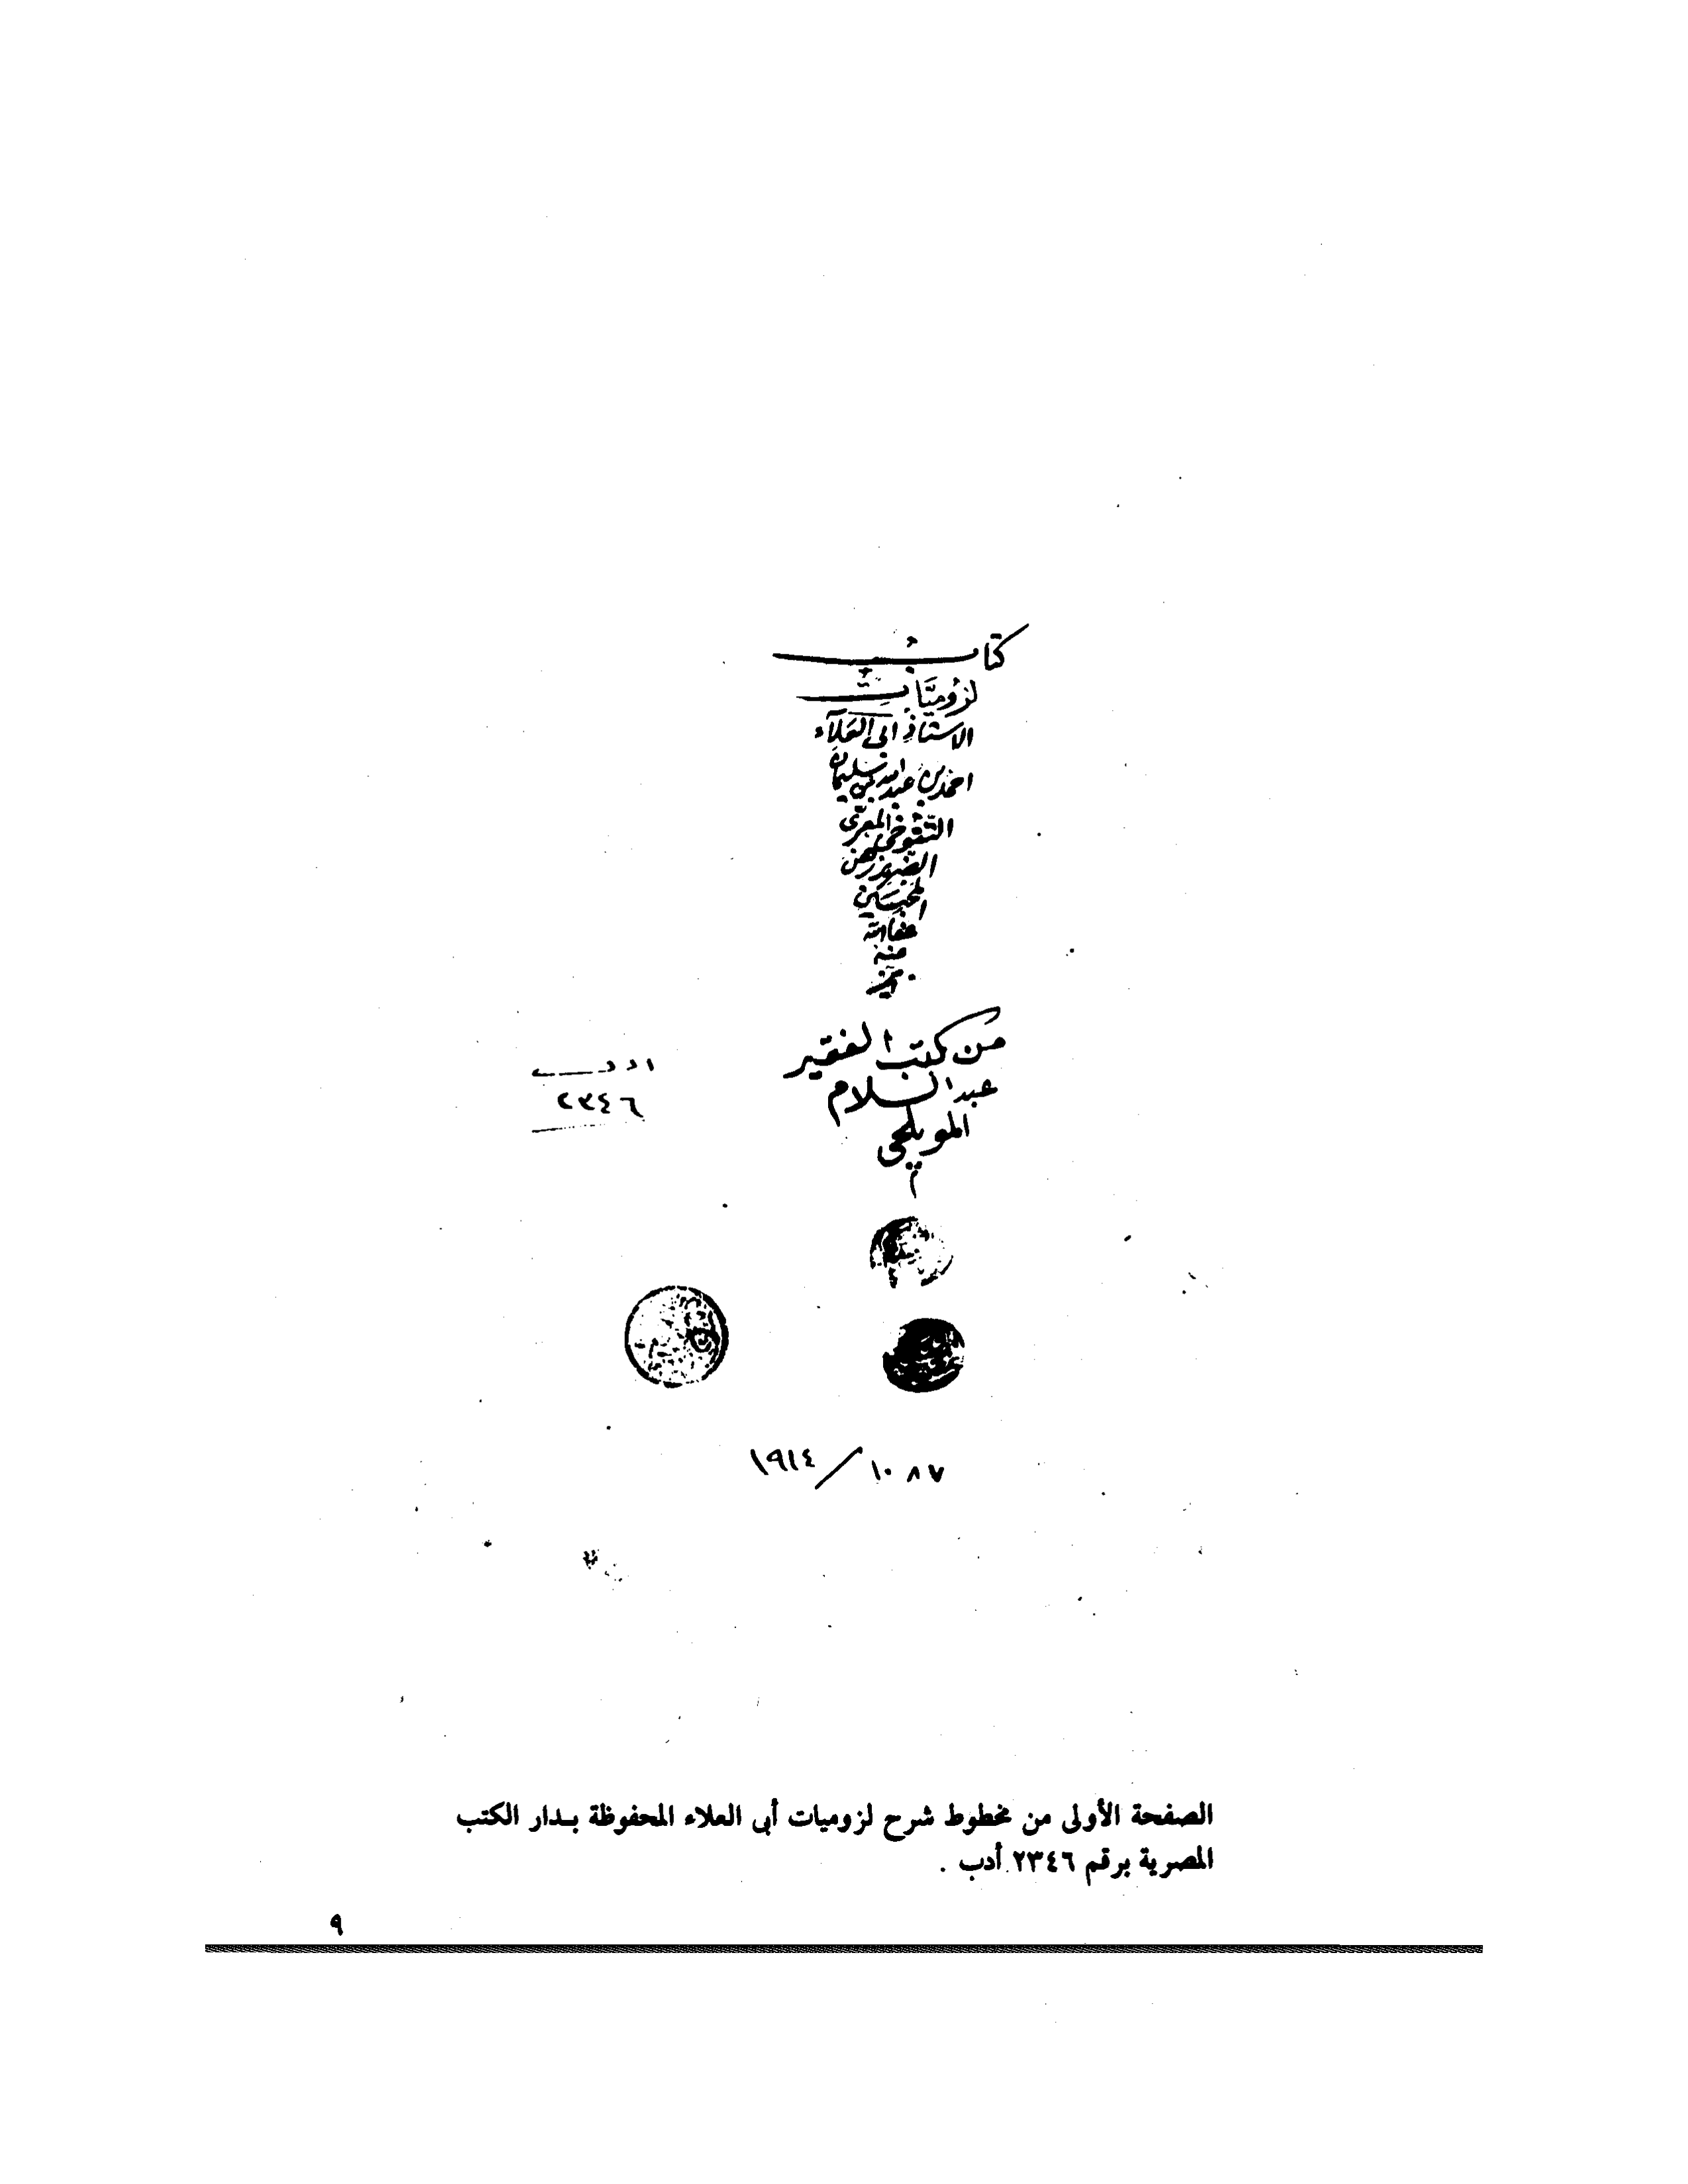 كتابُ
لزُوميَّاتِ
الاستاذِ ابى العَلآء
احمد بن عبد الله بن سليمان
التَّنوُخى المعرّى
الضرير رهن
المحبسَين
عفا الله
عنه
من كتب الفقير
عبد السلام
المويلحى
ادب
٢٣٤٦
١٠٨٧ / ١٩١٤
الصفحة الأولى من مخطوط شرح لزوميات أبى العلاء المحفوظة بدار الكتب
المصرية برقم ٢٣٤٦ أدب .
٩